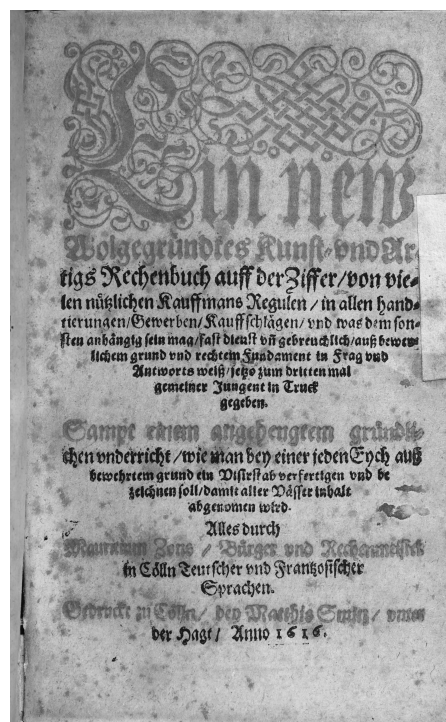 Ein new
Wolgegründtes Kunst-vnd Ar-
tigs Rechenbuch auff der Ziffer/von vie-
len nützlichen Kauffmans Regulen/in allen hand-
tierungen/Gewerben/Kauffschlägen/vnd was dem son-
sten anhängig sein mag/fast dienst vñ gebreuchlich/auß bewer-
lichem grund vnd rechtem Fundament in Frag vnd
Antworts weiß/jetzo zum dritten mal
gemeiner Jungent in Truck
gegeben.
Sampt einem angehengtem gründli-
chen vnderricht/wie man bey einer jeden Eych auß
bewehrtem grund ein Visirstab verfertigen vnd be
zeichnen soll/damit aller Vässer inhalt
abgenomen wird.
Alles durch
Mauritium Zons/Bürger vnd Rechenmeister
in Cölln Teutscher vnd Frantzosischer
Sprachen.
Gedruckt zu Cölln/bey Matthis Smitz/vnden
der Hagt/Anno 1616.